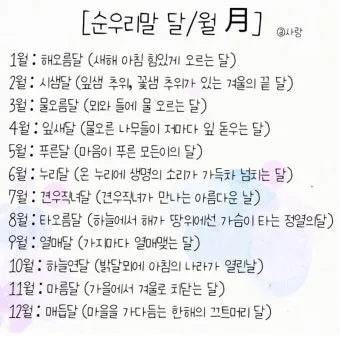 [순우리말 달/월 月] @사랑
1월 : 해오름달 (새해 아침 힘있게 오르는 달)
2월 : 시샘달 (잎샘 추위, 꽃샘 추위가 있는 겨울의 끝 달)
3월 : 물오름달 (뫼와 들에 물 오르는 달)
4월 : 잎새달 (물오른 나무들이 저마다 잎 돋우는 달)
5월 : 푸른달 (마음이 푸른 모든이의 달)
6월 : 누리달 (온 누리에 생명의 소리가 가득차 넘치는 달)
7월 : 견우직녀달 (견우직녀가 만나는 아름다운 날)
8월 : 타오름달 (하늘에서 해가 땅위에선 가슴이 타는 정열의달)
9월 : 열매달 (가지마다 열매맺는 달)
10월 : 하늘연달 (밝달뫼에 아침의 나라가 열린날)
11월 : 마름달 (가을에서 겨울로 치닫는 달)
12월 : 매듭달 (마음을 가다듬는 한해의 끄트머리 달)